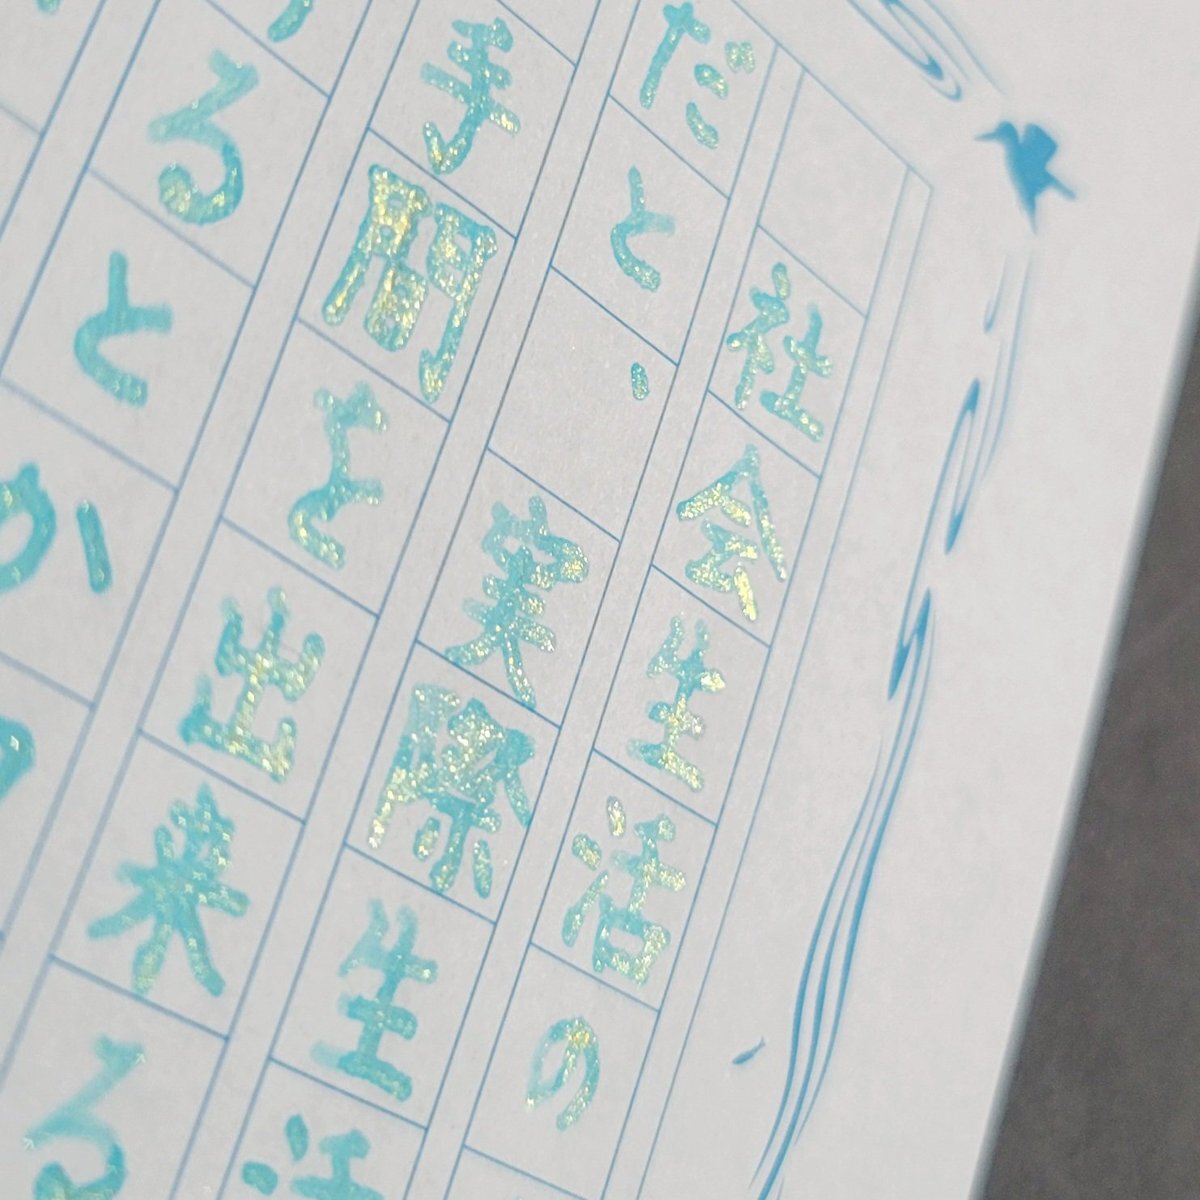 社会生活の
だと、実際生活
手間と出来る
ると